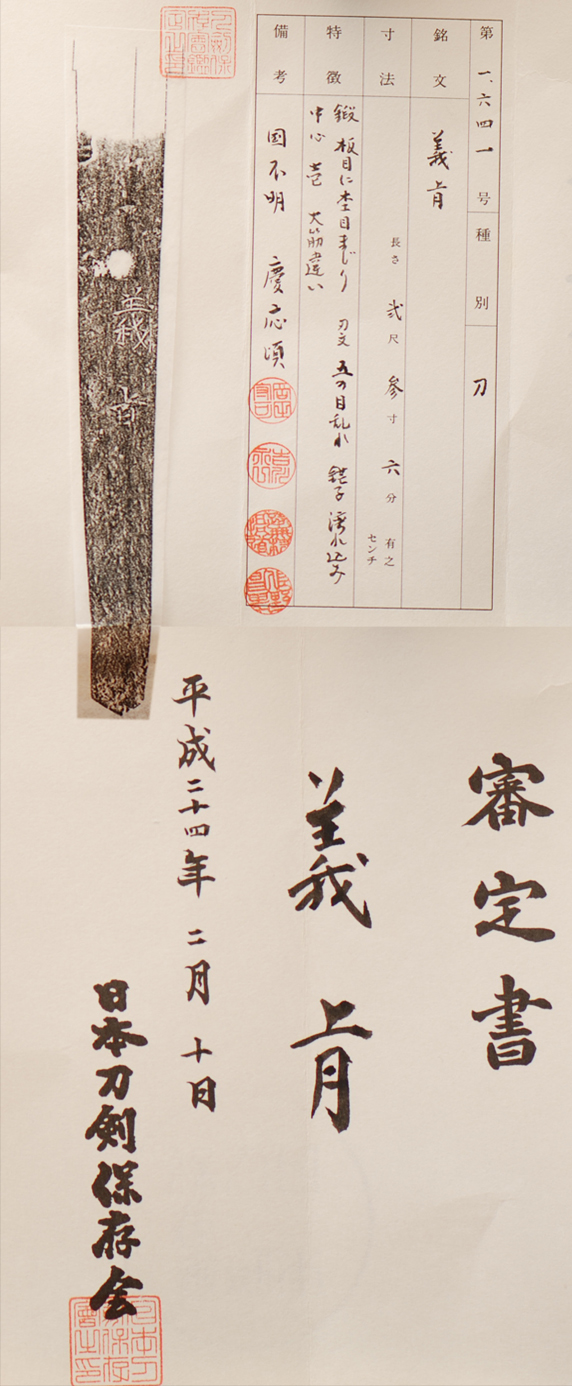 第一、六四一号 種別 刀
銘文 義肯
寸法 長さ 弐尺 参寸 六分 有之
センチ
特徴 鍛 板目に杢目まじり 刃文 五の目乱れ 鋩子 湾れ込み
中心 壱 大筋違い
備考 国不明 慶応頃
義肯
審定書
義肯
平成二十四年 二月 十日
日本刀剣保存会